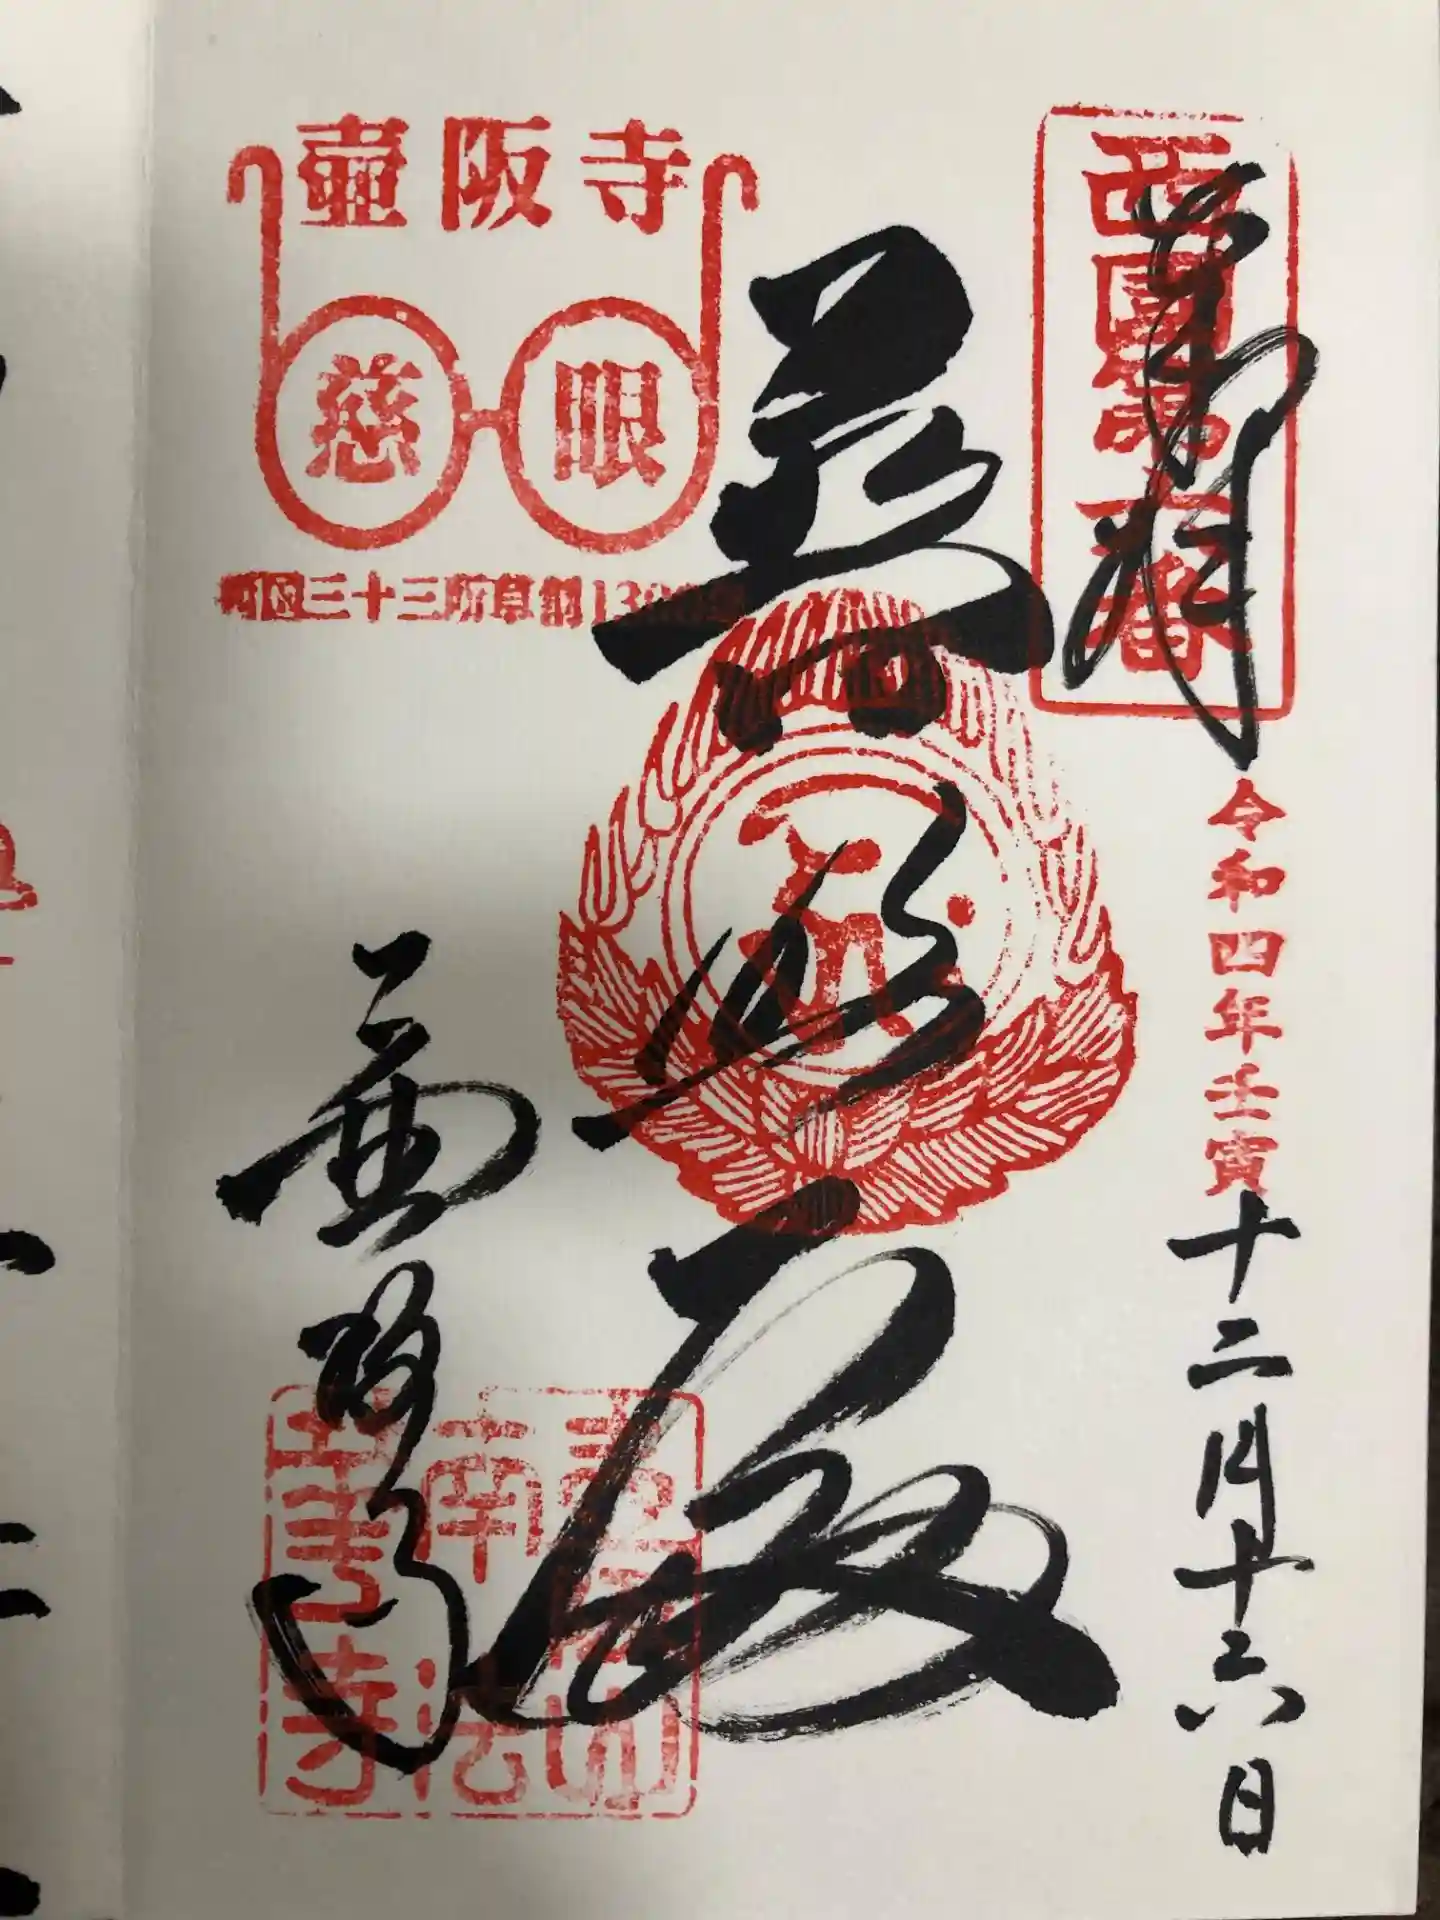 奉拝
西國第六番
令和四年壬寅十二月十六日
普照殿
壺阪寺
慈眼
西国三十三所草創1300年
壺阪寺
壺阪山
南法
華寺